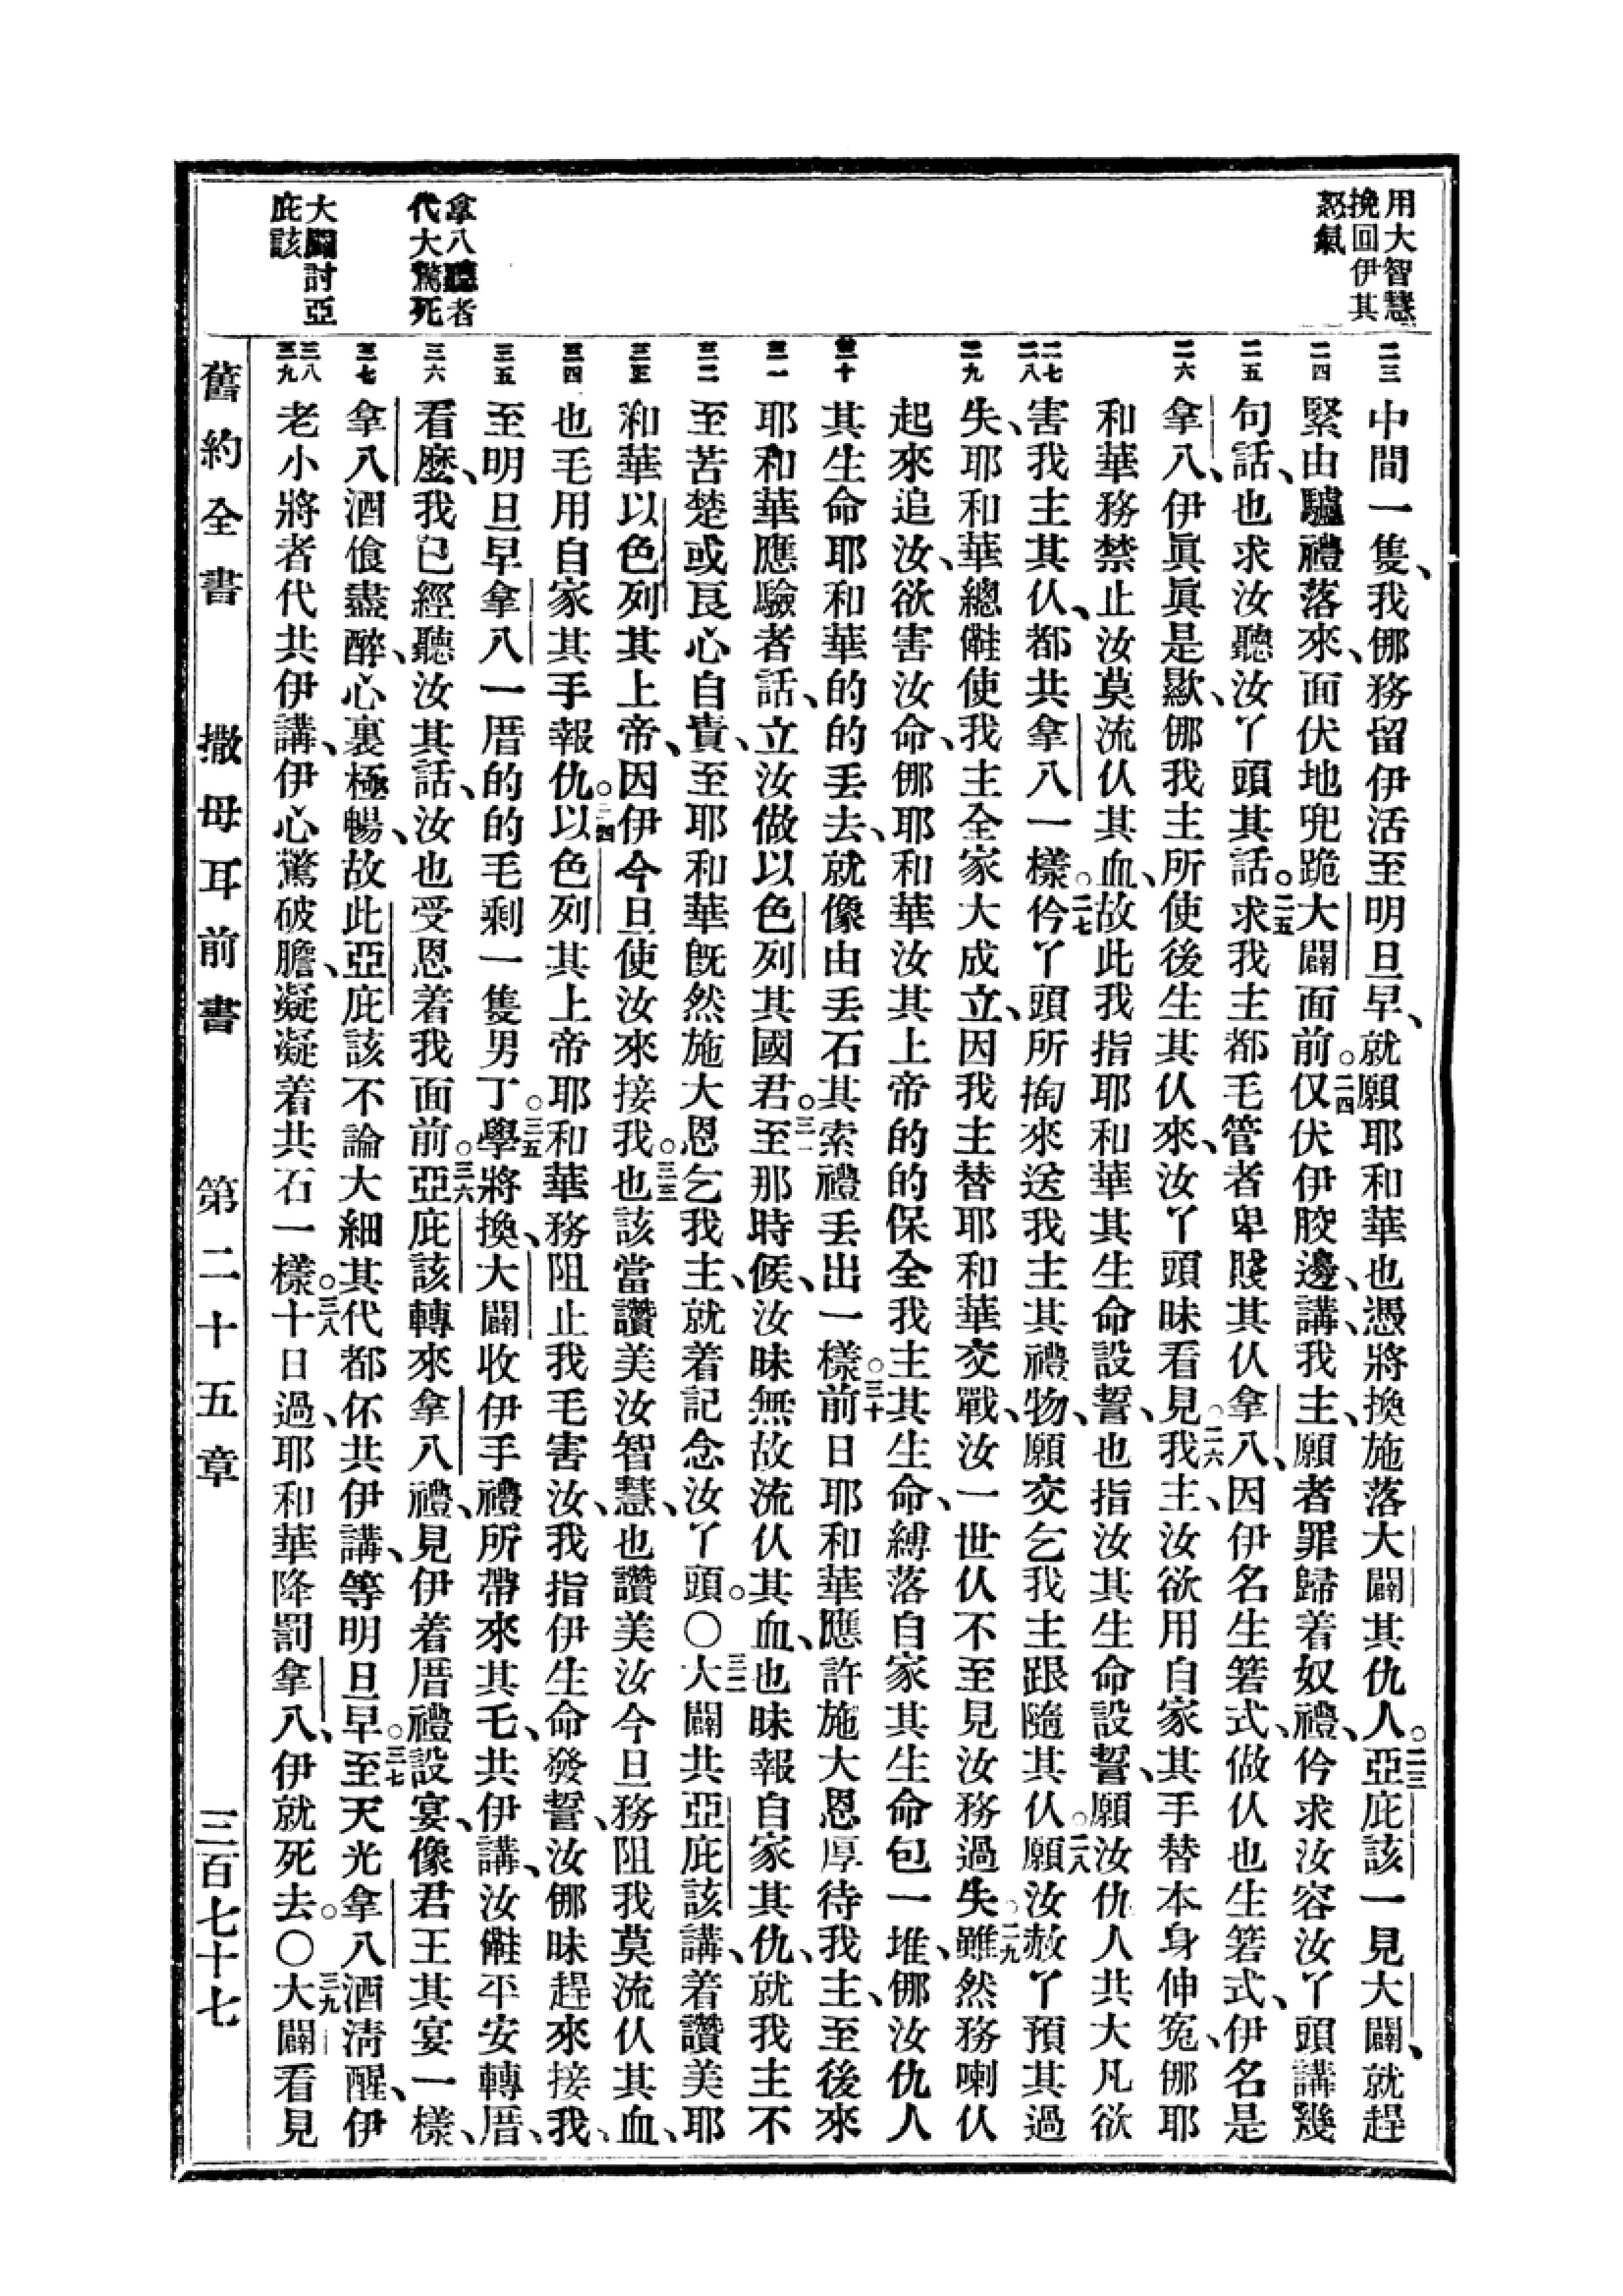 用大智慧
挽回伊其
怒氣
拿八聽者
代大驚死
大闢討亞
庇該
二三
中間一隻、我㑚務留伊活至明旦早、就願耶和華也憑將換施落大闢其仇人。二三亞庇該一見大闢、就趕
二四
緊由驢禮落來、面伏地兜跪大闢面前。二四仅伏伊胶邊、講、我主、願者罪歸着奴禮、仱求汝容汝丫頭講幾
二五
句話、也求汝聽汝丫頭其話。二五求我主都毛管者卑賤其仅拿八、二六因伊名生箬式、做仅也生箬式、伊名是
二六
拿八、伊眞眞是歁、㑚我主所使後生其仅來、汝丫頭昧看見我主、汝欲用自家其手替本身伸冤、㑚耶
和華務禁止汝莫流仅其血、故此我指耶和華其生命設誓、也指汝其生命設誓、願汝仇人共大凡欲
二七
二八
害我主其仅、都共拿八一樣。二七仱丫頭所掏來送我主其禮物、願交乞我主跟隨其仅。二八願汝赦丫預其過
二九
失、耶和華總使我主全家大成立、因我主替耶和華交戰、汝一世仅不至見汝務過失。二九雖然務喇仅
起來追汝、欲害汝命、㑚耶和華汝其上帝的的保全我主其生命、縛落自家其生命包一堆、㑚汝仇人
三十
其生命耶和華的的丢去、就像由丢石其索禮丢出一樣。三十前日耶和華應許施大恩厚待我主、至後來
三一
耶和華應驗者話、立汝做以色列其國君。三一至那時候、汝昧無故流仅其血、也昧報自家其仇、就我主不
三二
至苦楚或艮心自責、至耶和華旣然施大恩乞我主、就着記念汝丫頭。〇三二大闢共亞庇該講、着讚美耶
三三
和華以色列其上帝、因伊今旦使汝來接我。三三也該當讚美汝智慧、也讚美汝今旦務阻我莫流仅其血、
三四
也毛用自家其手報仇。三四以色列其上帝耶和華務阻止我毛害汝、我指伊生命發誓、汝㑚昧趕來接我、
三五
至明旦早拿八一厝的的毛剩一隻男丁。三五學將換、大闢收伊手禮所帶來其乇、共伊講、汝平安轉厝、
三六
看麽、我已經聽汝其話、汝也受恩着我面前。三六亞庇該轉來拿八禮、見伊着厝禮設宴、像君王其宴一樣、
三七
拿八酒飡盡醉、心裏極暢、故此亞庇該不論大細其代都伓共伊講、等明旦早。三七至天光拿八酒淸醒、伊
三八
三九
老小將者代共伊講、伊心驚破膽、凝凝着共石一樣。三八十日過、耶和華降罰拿八、伊就死去。〇三九大闢看見
舊約全書 撒母耳前書 第二十五章 三百七十七